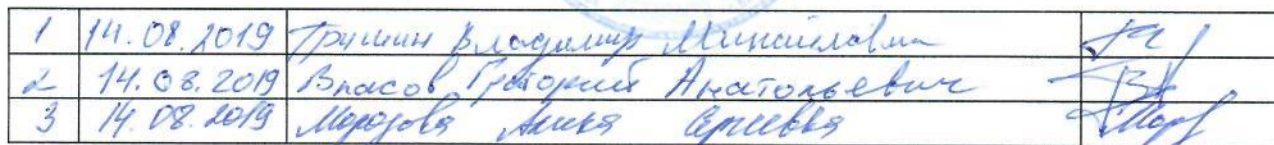 1 14.08.2019 Гришин Владимир Михайлович
2 14.08.2019 Власов Григорий Анатольевич
3 14.08.2019 Морозова Алина Сергеевна